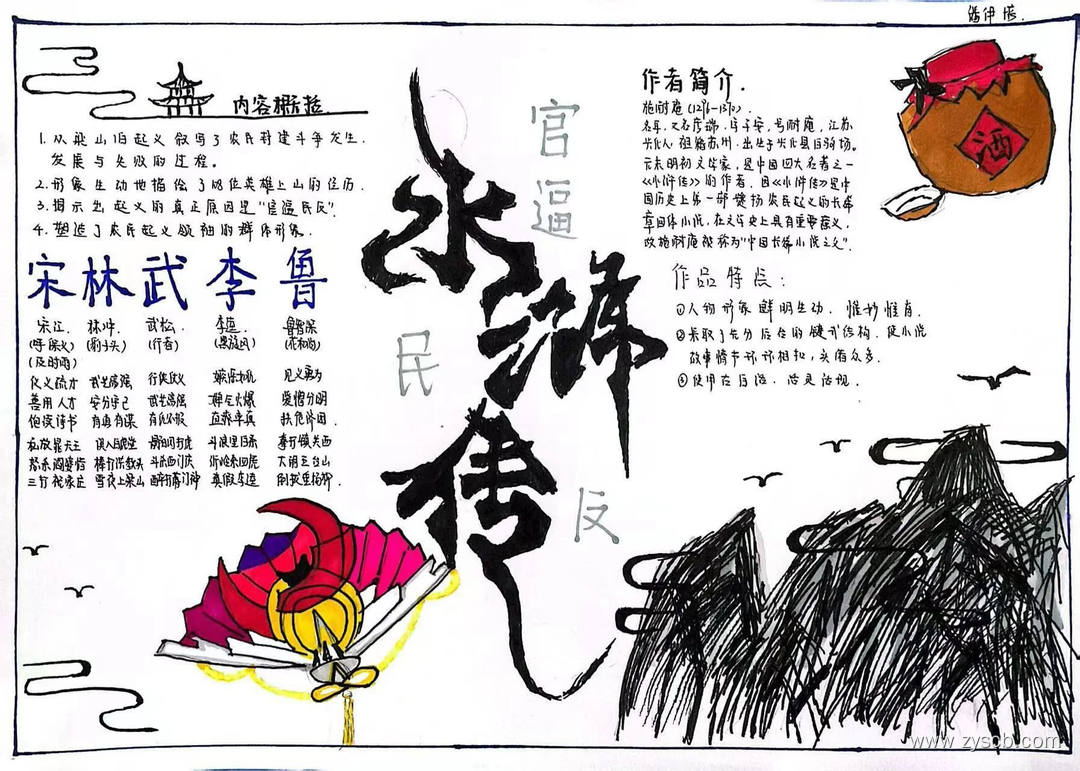 内容概括
1.从梁山泊起义叙写了农民封建斗争发生、
发展与失败的过程。
2.形象生动地描绘了108位英雄上山的经历.
3.揭示出起义的真正原因是“官逼民反”.
4.塑造了农民起义领袖的群体形象.
宋林武李鲁
宋江. 林冲. 武松. 李逵. 鲁智深
(呼保义) (豹子头) (行者) (黑旋风) (花和尚)
(及时雨)
仗义疏才 武艺高强 行侠仗义 见义勇为
善用人才 安分守己 武艺高强 脾气火爆 爱憎分明
饱读诗书 有勇有谋 有仇必报 直率率真 扶危济困.
私放晁天王 误入白虎堂 景阳冈打虎 斗浪里白条 拳打镇关西
怒杀阎婆惜 棒打洪教头 斗杀西门庆 沂岭杀四虎 大闹五台山
三打祝家庄 雪夜上梁山 醉打蒋门神 真假李逵 倒拔垂杨柳.
水浒传
官逼
民
反
作者简介.
施耐庵(1296-1370).
名耳,又名彦端,字子安,号耐庵,江苏
兴化人,祖籍苏州,出生于兴化县白驹场。
元末明初文学家,是中国四大名著之一
《水浒传》的作者,因《水浒传》是中
国历史上第一部健扬农民起义的长篇
章回体小说,在文学史上具有重要意义,
故施耐庵被称为“中国长篇小说之父”.
作品特点:
①人物形象鲜明生动,惟妙惟肖.
②采取了先分后合的链式结构,使小说
故事情节环环相扣,头绪众多.
③使用
酒
www.zyscb.com